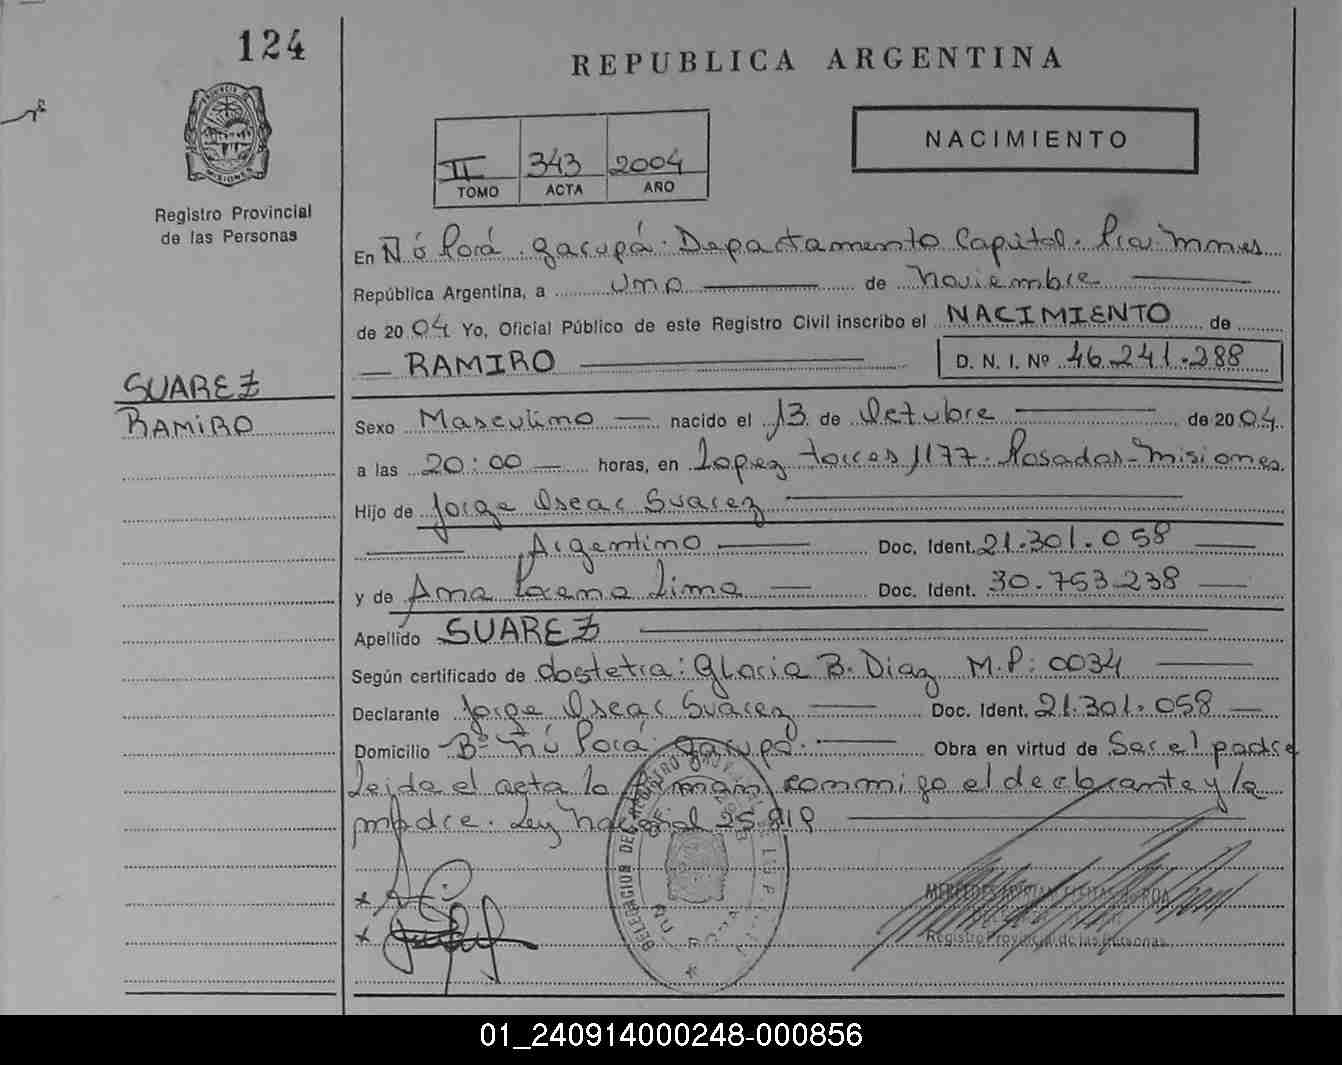 124
REPUBLICA ARGENTINA
NACIMIENTO
II 343 2004
TOMO ACTA AÑO
PROVINCIA DE MISIONES
Registro Provincial
de las Personas
En Ñú Porá. Garupá. Departamento Capital. Pcia. Mnes
República Argentina, a uno de Noviembre
de 2004 Yo, Oficial Público de este Registro Civil inscribo el NACIMIENTO de
RAMIRO D. N. I. Nº 46.241.288
SUAREZ
RAMIRO
Sexo Masculino nacido el 13 de Octubre de 2004
a las 20:00 horas, en Lopez torres 1177. Posadas-Misiones.
Hijo de Jorge Oscar Suarez
Argentino Doc. Ident. 21.301.058
y de Ana Lorena Lima Doc. Ident. 30.753.238
Apellido SUAREZ
Según certificado de obstetra: Gloria B. Diaz M.P: 0034
Declarante Jorge Oscar Suarez Doc. Ident. 21.301.058
Domicilio Bº Ñú Porá. Garupá. Obra en virtud de Ser el padre
Leida el acta la firman conmigo el declarante y la
madre. Ley Nacional
DELEGACION DEL REGISTRO PROVINCIAL DE LAS PERSONAS
ÑU PORA
Registro Provincial de las Personas
01_240914000248-000856